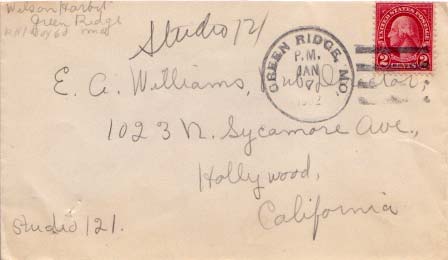 Wilson Harbit
Green Ridge
Mo
Studio 121
GREEN RIDGE, MO.
P.M.
JAN
7
UNITED STATES POSTAGE
2 CENTS 2
E. A. Williams,
1023 N. Sycamore Ave.,
Hollywood,
California
Studio 121.